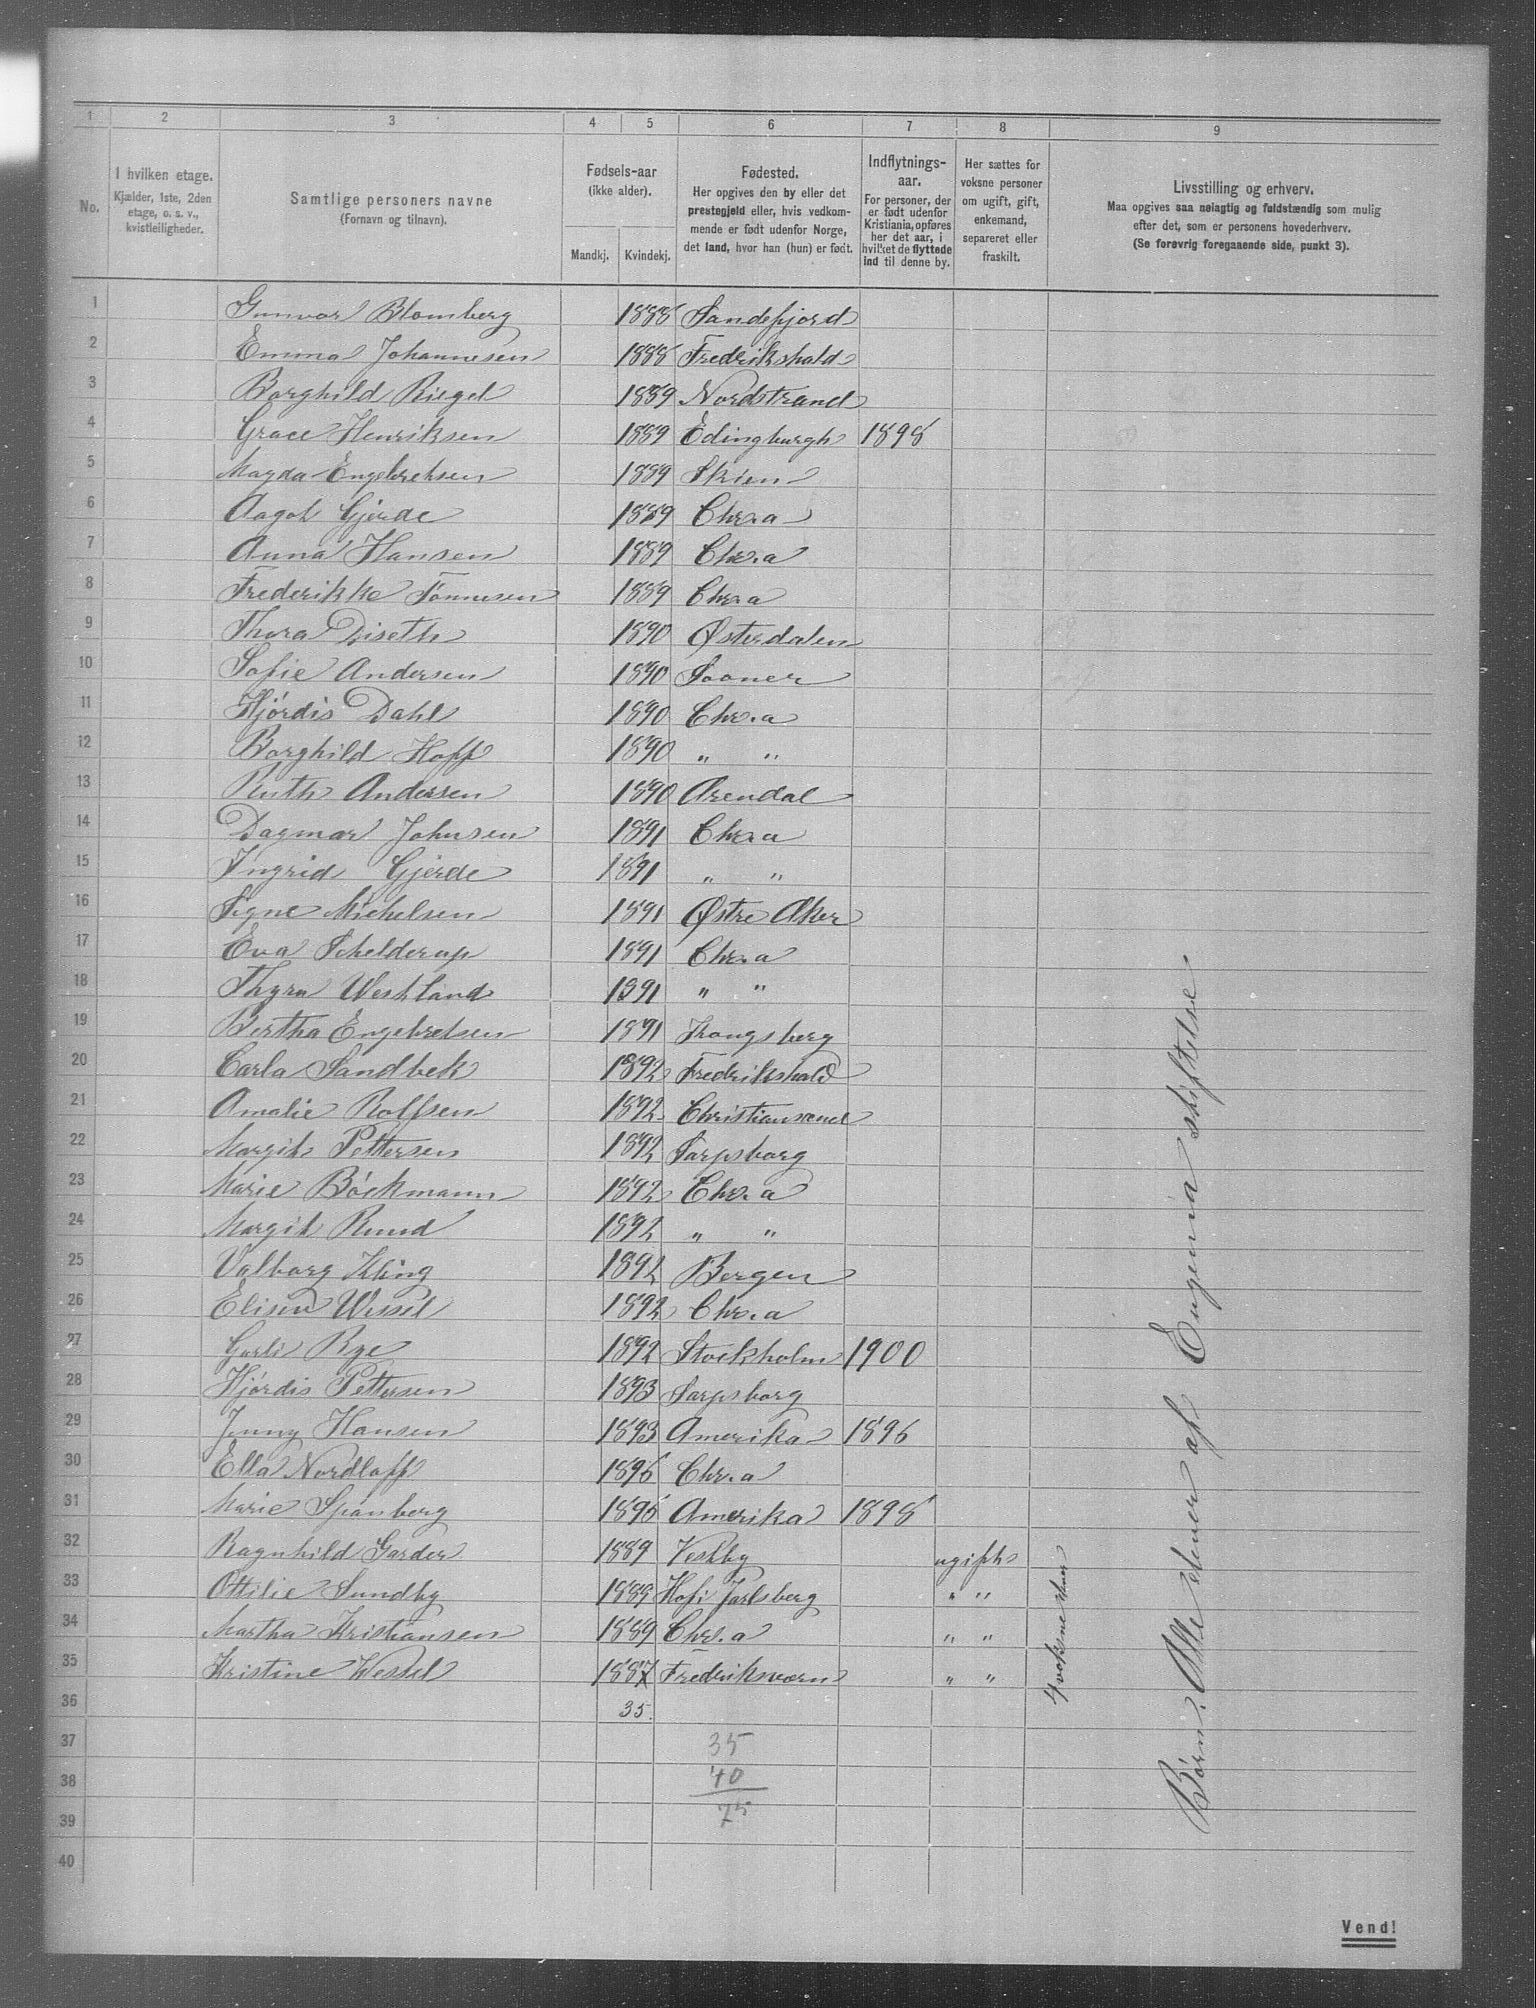 1 2 3 4 5 6 7 8 9
No.
I hvilken etage.
Kjælder, 1ste, 2den
etage, o. s. v.,
kvistleiligheder.
Samtlige personers navne
(Fornavn og tilnavn).
Fødsels-aar
(ikke alder).
Mandkj. Kvindekj.
Fødested.
Her opgives den by eller det
prestegjeld eller, hvis vedkom-
mende er født udenfor Norge,
det land, hvor han (hun) er født.
Indflytnings-
aar.
For personer, der
er født udenfor
Kristiania, opføres
her det aar, i
hvilket de flyttede
ind til denne by.
Her sættes for
voksne personer
om ugift, gift,
enkemand,
separeret eller
fraskilt.
Livsstilling og erhverv.
Maa opgives saa nøiagtig og fuldstændig som mulig
efter det, som er personens hovederhverv.
(Se forøvrig foregaaende side, punkt 3).
1 Gunvor Blomberg 1888 Sandefjord
2 Emma Johannesen 1888 Fredrikshald
3 Borghild Riegel 1889 Nordstrand
4 Grace Henriksen 1889 Edingburgh 1898
5 Magda Engebretsen 1889 Skien
6 Aagot Gjerde 1889 Chr.a
7 Anna Hansen 1889 Chr.a
8 Frederikke Tönnesen 1889 Chr.a
9 Thora Diseth 1890 Østerdalen
10 Sofie Andersen 1890 Sooner
11 Hjórdis Dahl 1890 Chr.a
12 Borghild Hoff 1890 " "
13 Ruth Andersen 1890 Arendal
14 Dagmar Johnsen 1891 Chr.a
15 Ingrid Gjerde 1891 " "
16 Signe Michelsen 1891 Østre Aker
17 Eva Schelderup 1891 Chr.a
18 Thyra Westland 1891 " "
19 Bertha Engebretsen 1891 Kongsberg
20 Carla Sandbek 1892 Fredrikshald
21 Amalie Rolfsen 1892 Christiansand
22 Margit Pettersen 1892 Sarpsborg
23 Marie Böckmann 1892 Chr.a
24 Margit Ruud 1892 " "
25 Valborg Kling 1892 Bergen
26 Elisen Wessel 1892 Chr.a
27 Rye 1892 Stockholm 1900
28 Hjórdis Pettersen 1893 Sarpsborg
29 Jenny Hansen 1893 Amerika 1896
30 Ella Nordloff 1896 Chr.a
31 Marie Spánberg 1896 Amerika 1898
32 Ragnhild Garder 1889 Vestby ugift
33 Ottilie Sundby 1889 Jarlsberg " "
34 Martha Kristiansen 1889 Chr.a " "
35 Kristine Wessel 1887 Fredriksværn " "
36 35.
37 35
38 40
39 75
40
4 voksne
Börn. Alle elever af Eugenia stiftelse
Vend!